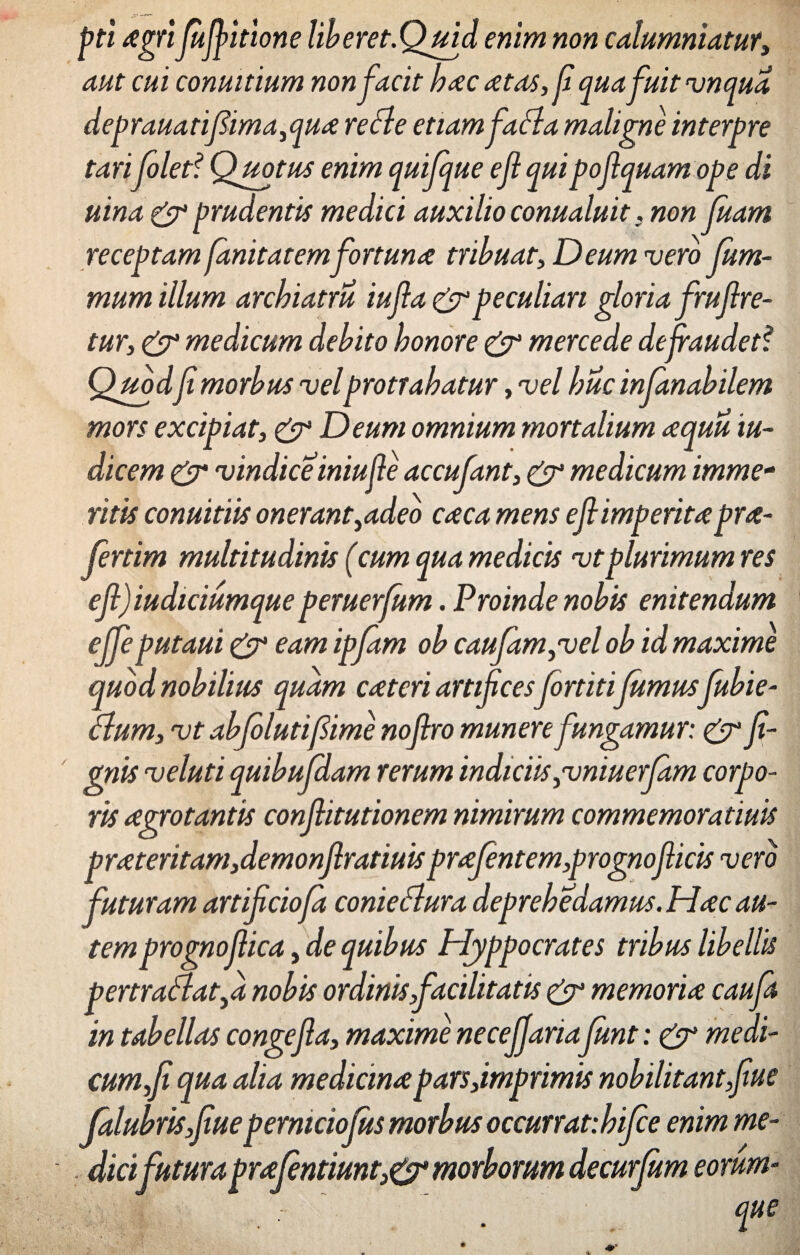 pti ægri ſuſpitione liberet. Quid enim non calumniatur,
aut cui conuitium non facit hæc ætas, ſi qua fuit vnquã
deprauatiſsima, quæ recte etiam facta maligne interpre
tari ſolet? Quotus enim quiſque eſt qui poſtquam ope di
uina & prudentis medici auxilio conualuit, non ſuam
receptam ſanitatem fortunæ tribuat, Deum verò ſum-
mum illum archiatrũ iuſta & peculiari gloria fruſtre-
tur, & medicum debito honore & mercede defraudet?
Quòd ſi morbus vel protrahatur, vel hũc inſanabilem
mors excipiat, & Deum omnium mortalium æquũ iu-
dicem & vindicẽ iniuſtè accuſant, & medicum imme-
ritis conuitiis onerant, adeò cæca mens eſt imperitæ præ-
ſertim multitudinis (cum qua medicis vt plurimum res
eſt) iudiciúmque peruerſum. Proinde nobis enitendum
eſſe putaui & eam ipſam ob cauſam, vel ob id maximè
quòd nobilius quàm cæteri artifices ſortiti ſumus ſubie-
ctum, vt abſolutiſsimè noſtro munere fungamur: & ſi-
gnis veluti quibuſdam rerum indiciis, vniuerſam corpo-
ris ægrotantis conſtitutionem nimirum commemoratiuis
præteritam, demonſtratiuis præſentem, prognoſticis verò
futuram artificioſa coniectura deprehẽdamus. Hæc au-
tem prognoſtica, de quibus Hyppocrates tribus libellis
pertractat, à nobis ordinis, facilitatis & memoriæ cauſa
in tabellas congeſta, maximè neceſſaria ſunt: & medi-
cum, ſi qua alia medicinæ pars, imprimis nobilitant, ſiue
ſalubris, ſiue pernicioſus morbus occurrat: hiſce enim me-
dici futura præſentiunt, & morborum decurſum eorúm-
que